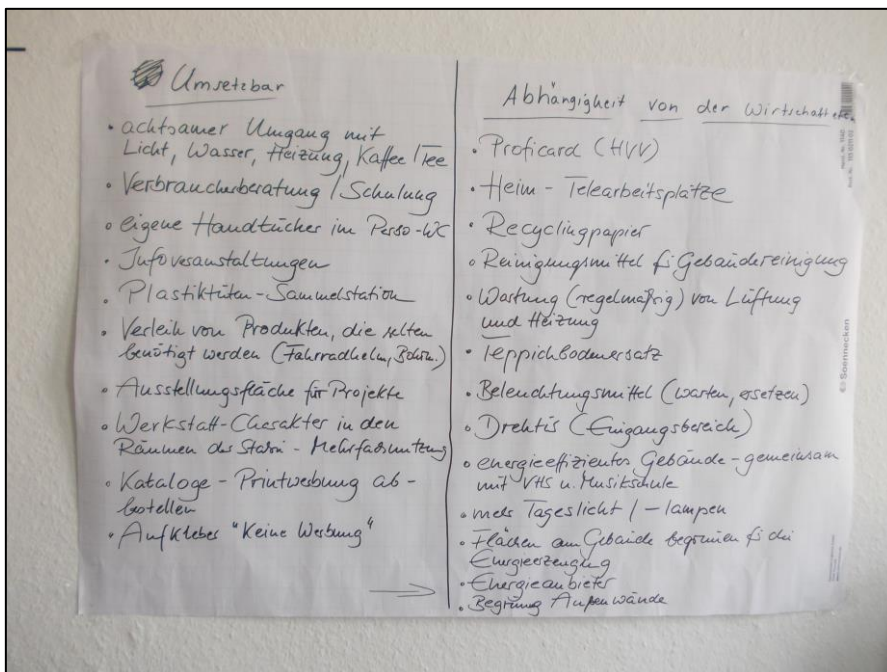 Umsetzbar
• achtsamer Umgang mit
Licht, Wasser, Heizung, Kaffee / Tee
• Verbraucherberatung / Schulung
• eigene Handtücher im Perso-WC
• Infoveranstaltungen
• Plastiktüten-Sammelstation
• Verleih von Produkten, die selten
benötigt werden (Fahrradhelm,
• Ausstellungsfläche für Projekte
• Werkstatt-Charakter in den
Räumen der - Mehrfachnutzung
• Kataloge - Printwerbung ab-
bestellen
• Aufkleber "Keine Werbung"
Abhängigkeit von der Wirtschaft etc.
• Proficard (HVV)
• Heim - Telearbeitsplätze
• Recyclingpapier
• Reinigungsmittel f. Gebäudereinigung
• Wartung (regelmäßig) von Lüftung
und Heizung
• Teppichbodenersatz
• Beleuchtungsmittel (warten, ersetzen)
• Drehtür (Eingangsbereich)
• energieeffizientes Gebäude - gemeinsam
mit VHS u. Musikschule
• mehr Tageslicht / - lampen
• Flächen am Gebäude begrünen f. die
Energieerzeugung
• Energieanbieter
• Begrünung Außenwände
Soennecken